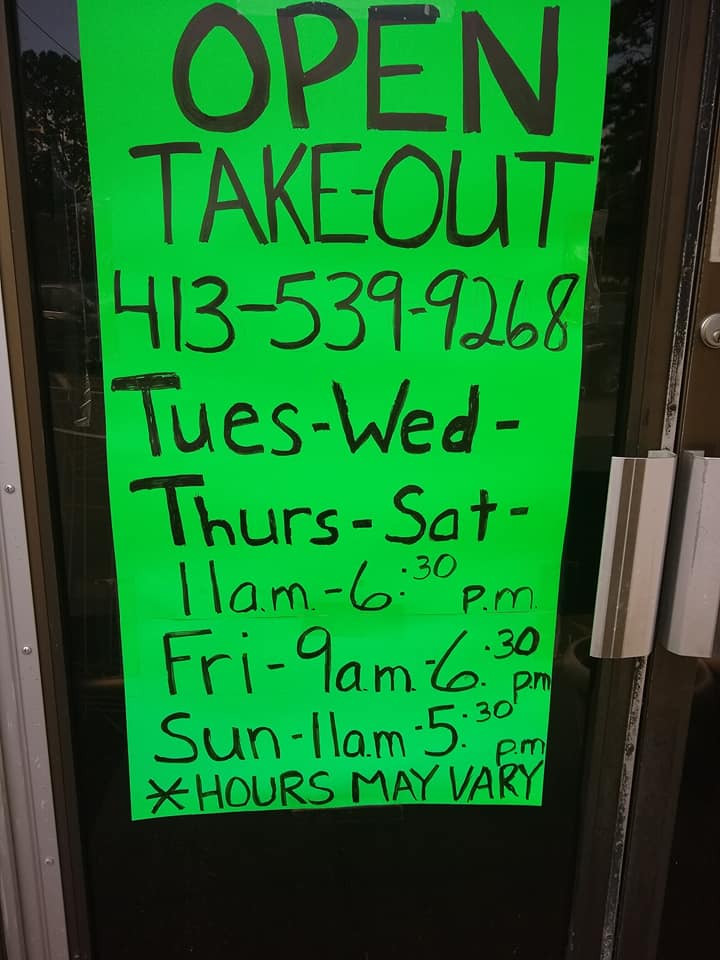 OPEN
TAKE-OUT
413-539-9268
Tues-Wed-
Thurs-Sat-
11a.m.-6:30 p.m.
Fri-9a.m.-6:30 p.m
Sun-11a.m-5:30 p.m
*HOURS MAY VARY